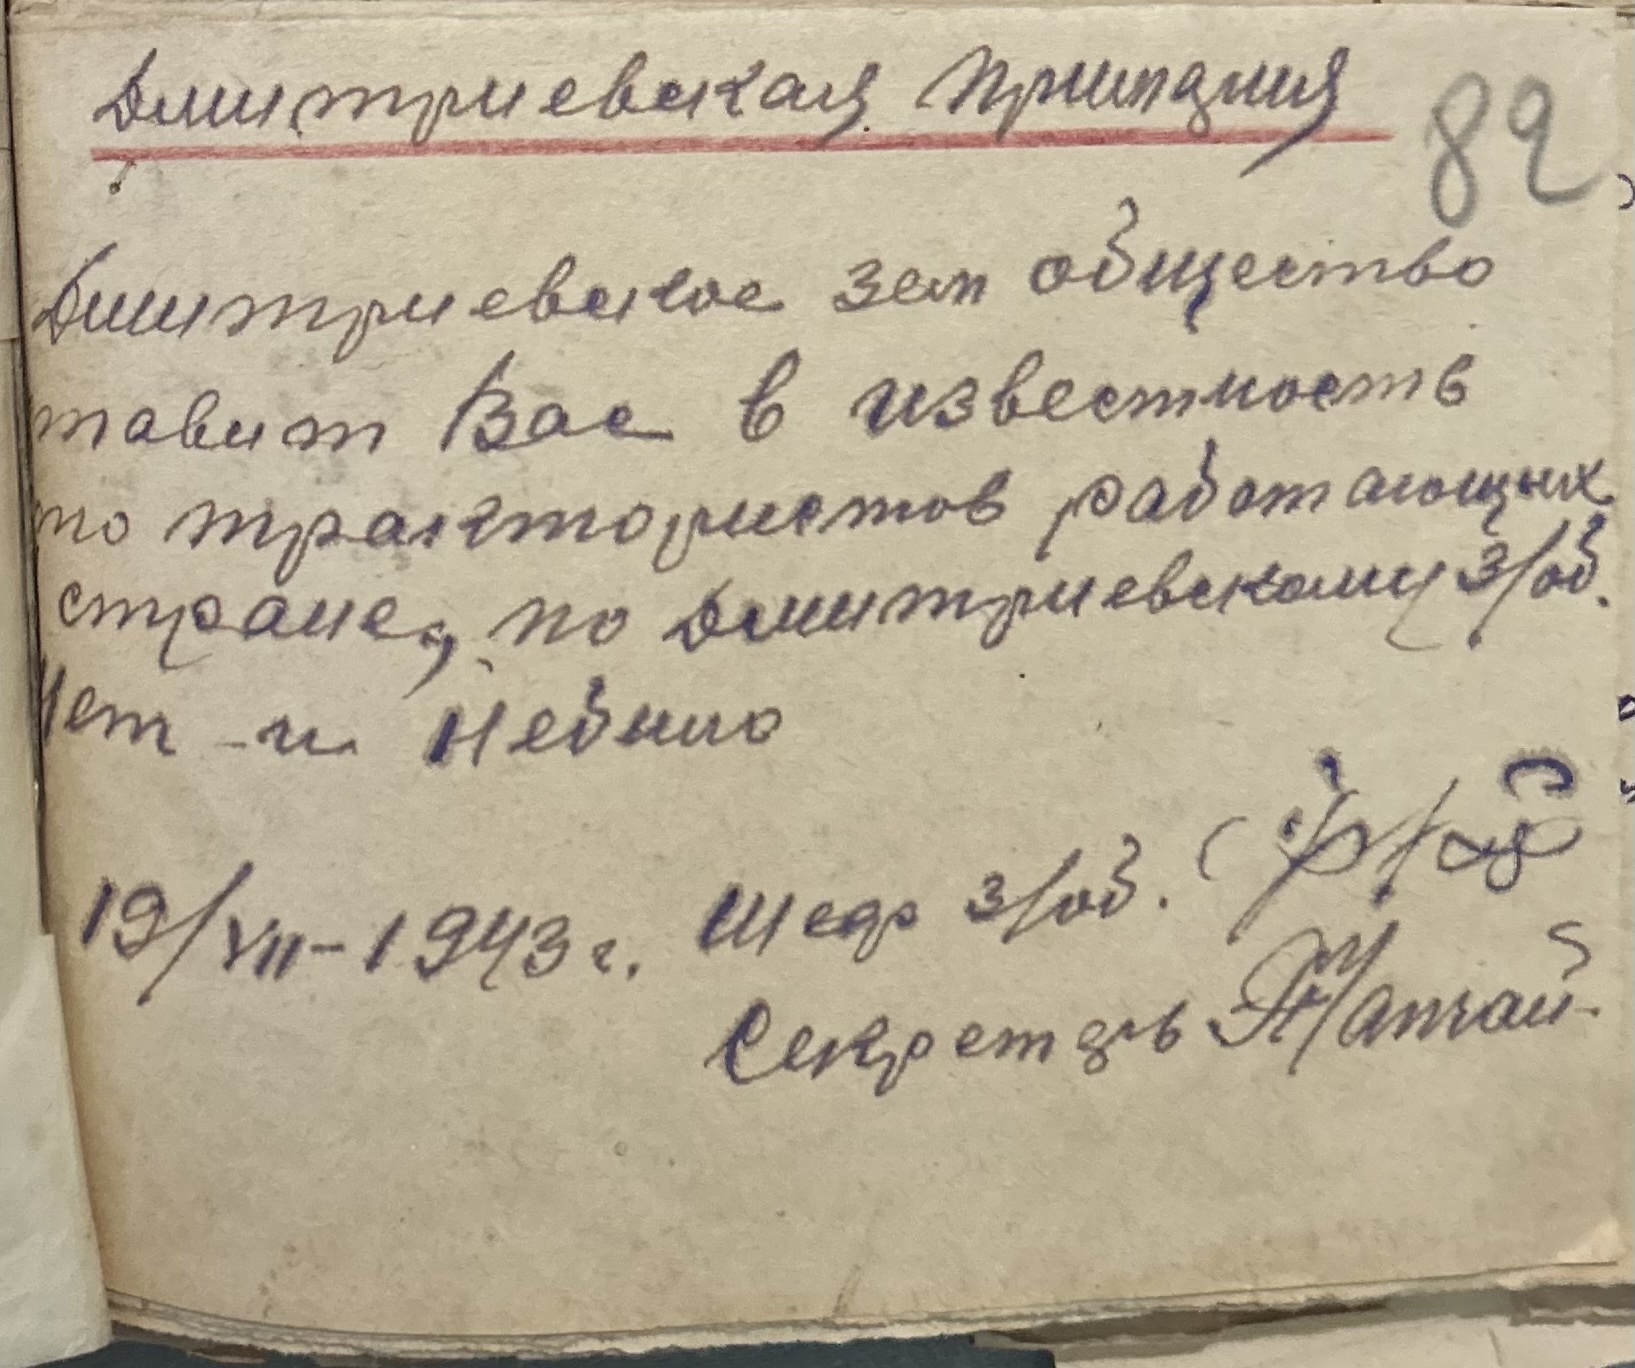 Дмитриевская
82
Дмитриевское зем общество
тавит Вас в известность
то трактористов работающых
стране, по Дмитриевскому З/об.
Нет - и Небыло
19/VII-1943 г. Шеф З/об. (
Секретарь